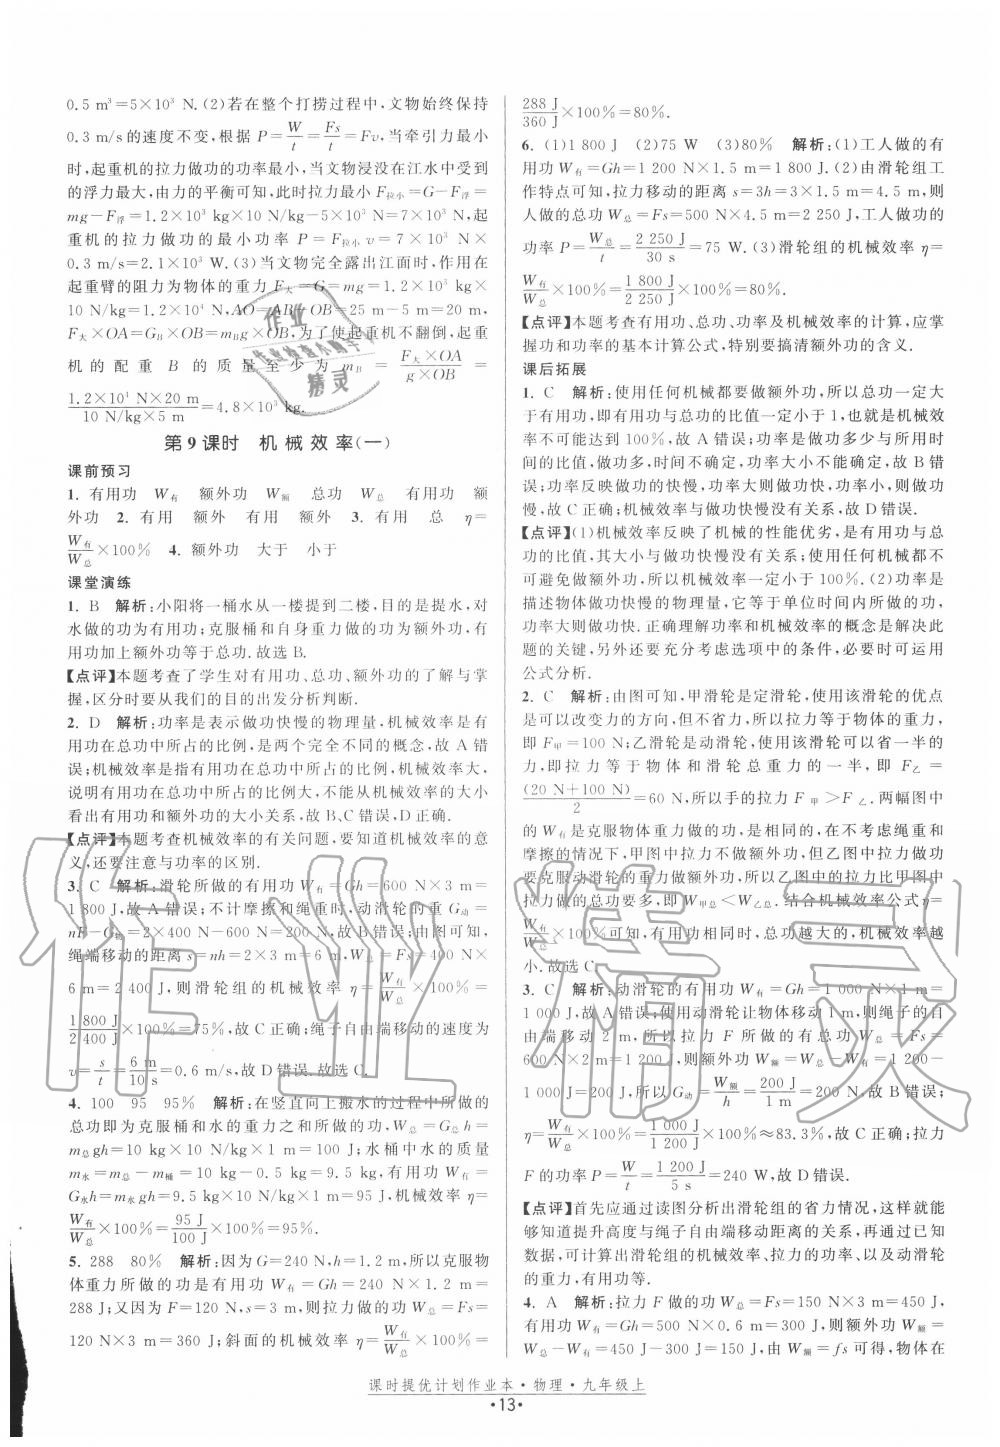 0.5 m³=5×10³ N.(2)若在整个打捞过程中,文物始终保持
0.3 m/s的速度不变,根据 P=W/t=Fs/t=Fv,当牵引力最小
时,起重机的拉力做功的功率最小,当文物浸没在江水中受到
的浮力最大,由力的平衡可知,此时拉力最小 F拉小=G-F浮=
mg-F浮=1.2×10³ kg×10 N/kg-5×10³ N=7×10³ N,起
重机的拉力做功的最小功率 P=F拉小v=7×10³ N×
0.3 m/s=2.1×10³ W.(3)当文物完全露出江面时,作用在
起重臂的阻力为物体的重力 F大=G=mg=1.2×10³ kg×
10 N/kg=1.2×10⁴ N,AO=AB-OB=25 m-5 m=20 m,
F大×OA=GB×OB=mBg×OB,为了使起重机不翻倒,起重
机的配重 B 的质量至少为 mB=F大×OA/g×OB=
1.2×10⁴ N×20 m/10 N/kg×5 m=4.8×10³ kg.
第9课时 机械效率(一)
课前预习
1. 有用功 W有 额外功 W额 总功 W总 有用功 额
外功 2. 有用 额外 有用 额外 3. 有用 总 η=
W有/W总×100% 4. 额外功 大于 小于
课堂演练
1. B 解析:小阳将一桶水从一楼提到二楼,目的是提水,对
水做的功为有用功;克服桶和自身重力做的功为额外功,有
用功加上额外功等于总功.故选B.
【点评】本题考查了学生对有用功、总功、额外功的了解与掌
握,区分时要从我们的目的出发分析判断.
2. D 解析:功率是表示做功快慢的物理量,机械效率是有
用功在总功中所占的比例,是两个完全不同的概念,故 A 错
误;机械效率是指有用功在总功中所占的比例,机械效率大,
说明有用功在总功中所占的比例大,不能从机械效率的大小
看出有用功和总功的大小关系,故B、C错误,D正确.
【点评】本题考查机械效率的有关问题,要知道机械效率的意
义,还要注意与功率的区别.
3. C 解析:滑轮所做的有用功 W有=Gh=600 N×3 m=
1 800 J,故 A 错误;不计摩擦和绳重时,动滑轮的重 G动=
nF-G物=2×400 N-600 N=200 N,故B错误;由图可知,
绳端移动的距离 s=nh=2×3 m=6 m,W总=Fs=400 N×
6 m=2 400 J,则滑轮组的机械效率 η=W有/W总×100%=
1 800 J/2 400 J×100%=75%,故C正确;绳子自由端移动的速度为
v=s/t=6 m/10 s=0.6 m/s,故D错误.故选C.
4. 100 95 95% 解析:在竖直向上搬水的过程中所做的
总功即为克服桶和水的重力之和所做的功,W总=G总h=
m总gh=10 kg×10 N/kg×1 m=100 J;水桶中水的质量
m水=m总-m桶=10 kg-0.5 kg=9.5 kg,有用功 W有=
G水h=m水gh=9.5 kg×10 N/kg×1 m=95 J,机械效率 η=
W有/W总×100%=95 J/100 J×100%=95%.
5. 288 80% 解析:因为G=240 N,h=1.2 m,所以克服物
体重力所做的功是有用功 W有=Gh=240 N×1.2 m=
288 J;又因为 F=120 N,s=3 m,则拉力做的功 W总=Fs=
120 N×3 m=360 J;斜面的机械效率 η=W有/W总×100%=
288 J/360 J×100%=80%.
6. (1)1 800 J (2)75 W (3)80% 解析:(1)工人做的有
用功 W有=Gh=1 200 N×1.5 m=1 800 J.(2)由滑轮组工
作特点可知,拉力移动的距离 s=3h=3×1.5 m=4.5 m,则
人做的总功 W总=Fs=500 N×4.5 m=2 250 J,工人做功的
功率 P=W总/t=2 250 J/30 s=75 W.(3)滑轮组的机械效率 η=
W有/W总×100%=1 800 J/2 250 J×100%=80%.
【点评】本题考查有用功、总功、功率及机械效率的计算,应掌
握功和功率的基本计算公式,特别要搞清额外功的含义.
课后拓展
1. C 解析:使用任何机械都要做额外功,所以总功一定大
于有用功,即有用功与总功的比值一定小于1,也就是机械效
率不可能达到 100%,故 A 错误;功率等于功与所用时间之比,做功多,时间不确定,功率大小不能确定,故B错
误;功率反映做功的快慢,功率大做功快,功率小,则做功
慢,故C正确;机械效率与做功快慢没有关系,故D错误.
【点评】(1)机械效率反映了机械的性能优劣,是有用功与总
功的比值,其大小与做功快慢没有关系;使用任何机械都不
可避免做额外功,所以机械效率一定小于 100%.(2)功率是
描述物体做功快慢的物理量,它等于单位时间内所做的功,
功率大则做功快.正确理解功率和机械效率的概念是解决此
题的关键,另外还要充分考虑选项中的条件,必要时可运用
公式分析.
2. C 解析:由图可知,甲滑轮是定滑轮,使用该滑轮的优点
是可以改变力的方向,但不省力,所以拉力等于物体的重力,
即 F甲=100 N;乙滑轮是动滑轮,使用该滑轮可以省一半的
力,即拉力等于物体和滑轮总重力的一半,即 F乙=
(20 N+100 N)/2=60 N,所以手的拉力 F甲>F乙.两幅图中
的 W有是克服物体重力做的功,是相同的,在不考虑绳重和
摩擦的情况下,甲图中拉力不做额外功,但乙图中拉力做功
要克服动滑轮的重力做功,所以乙图中的拉力比甲图中
拉力做的总功要多,即 W甲总<W乙总.结合机械效率公式 η=
W有/W总×100%可知,有用功相同时,总功越大的,机械效率越
小.故选C.
3. C 解析:动滑轮的有用功 W有=Gh=1 000 N×1 m=
1 000 J,故 A 错误;使用动滑轮让物体移动1 m,则绳子的自
由端移动 2 m,所以拉力 F 所做的有总功 W总=Fs=
600 N×2 m=1 200 J,则额外功 W额=W总-W有=1 200-
1 000 J=200 J,所以 G动=W额/h=200 J/1 m=200 N,故B错误;
η=W有/W总×100%=1 000 J/1 200 J×100%≈83.3%,故C正确;拉力
F 的功率 P=W/t=1 200 J/5 s=240 W,故D错误.
【点评】首先应通过读图分析出滑轮组的省力情况,这样就能
够知道提升高度与绳子自由端移动距离的关系,再通过已知
数据,可计算出滑轮组的机械效率、拉力的功率、以及动滑轮
的重力,有用功等.
4. A 解析:拉力 F 做的功 W总=Fs=150 N×3 m=450 J,
有用功 W有=Gh=500 N×0.6 m=300 J,则额外功 W额=
W总-W有=450 J-300 J=150 J,由 W额=fs 可得,物体在
课时提优计划作业本·物理·九年级上
·13·
作业
作业检查小助手
精灵
作业精灵